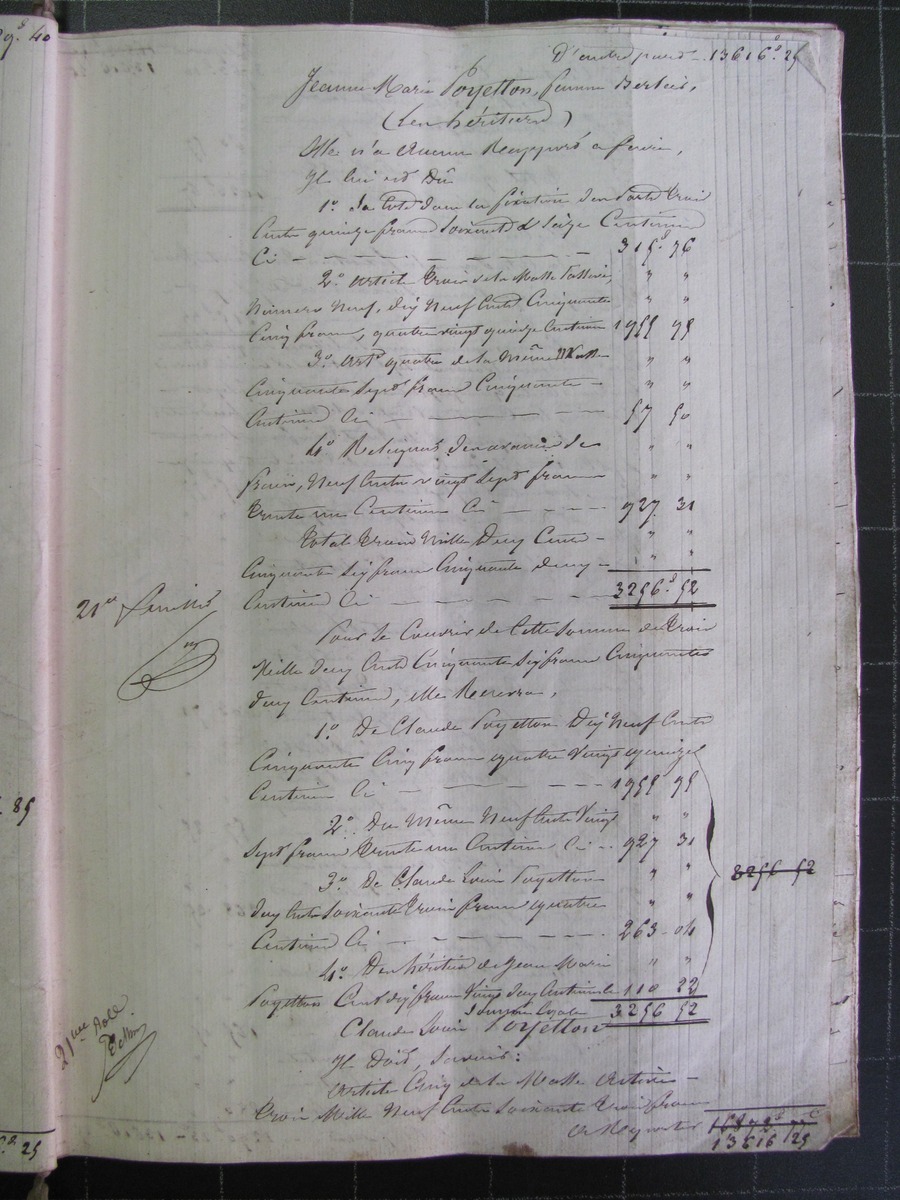 D'autre part - 13616.f 25
Jeanne Marie Poyetton, femme
(les héritiers)
Elle n'a aucun Rapport a faire,
Il lui est Dû
1.° Sa Cote dans la fixation des Trois
Cents quinze francs Soixante & Seize Centimes
Ci - - - 315.f 76
2.° Article Trois de la Masse " "
Numéro Neuf, Dix Neuf Cents Cinquante " "
Cinq francs, quatre vingt quinze Centimes 1955 95
3.° Art.e quatre de la même Masse " "
Cinquante Sept francs Cinquante - " "
Centimes Ci - - - 57 50
4.° de " "
Neuf Cents vingt Sept francs " "
Trente un Centimes Ci - - - 927 31
Total Trois Mille Deux Cents - " "
Cinquante Six francs Cinquante deux - " "
Centimes Ci - - - 3256.f 52
21.e feuillet
Pour Se Couvrir de Cette Somme de Trois
Mille deux Cents Cinquante Six francs Cinquante
deux Centimes, elle Recevra,
1.° De Claude Poyetton Dix Neuf Cents
Cinquante Cinq francs quatre Vingt quinze
Centimes Ci - - - 1955 95
2.° Du Même Neuf Cents Vingt " "
Sept francs Trente un Centimes Ci - - 927 31
3.° De Claude Louis Poyetton " "
3256 52
deux Cents Soixante Trois francs quatre " "
Centimes Ci - - - 263 - 04
4.° Des héritiers de Jean Marie " "
Poyetton Cent dix francs Vingt deux Centimes 110 22
Somme Egale 3256 52
Claude Louis Poyetton
Il Doit, Savoir:
Article Cinq de la Masse Active -
Trois Mille Neuf Cents Soixante Trois francs
21me Rôle
A Reporter 16872.f 77.c
13616 25